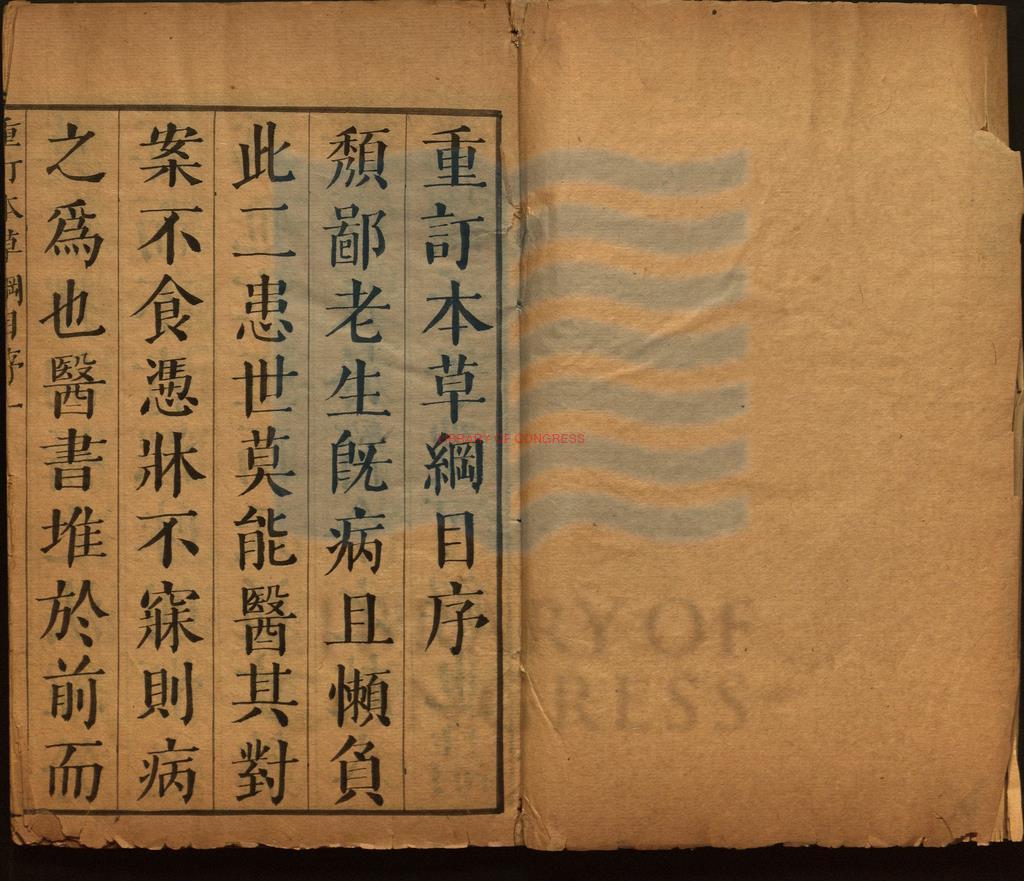 重訂本草綱目序
頽鄙老生旣病且懶負
此二患世莫能醫其對
案不食憑牀不寐則病
之爲也醫書堆於前而
重訂本草綱目序 一
LIBRARY OF CONGRESS
LIBRARY OF
CONGRESS